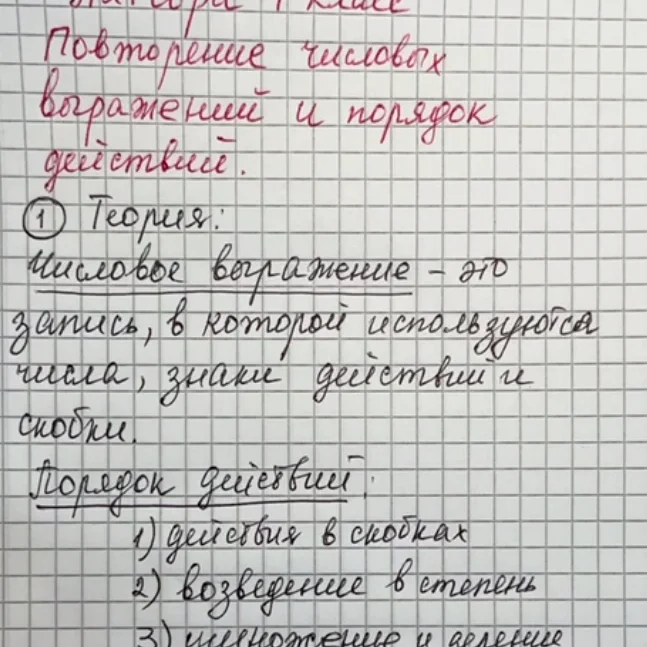 Алгебра 7 класс
Повторение числовых
выражений и порядок
действий.
1 Теория:
Числовое выражение - это
запись, в которой используются
числа, знаки действий и
скобки.
Порядок действий:
1) действия в скобках
2) возведение в степень
3) умножение и деление